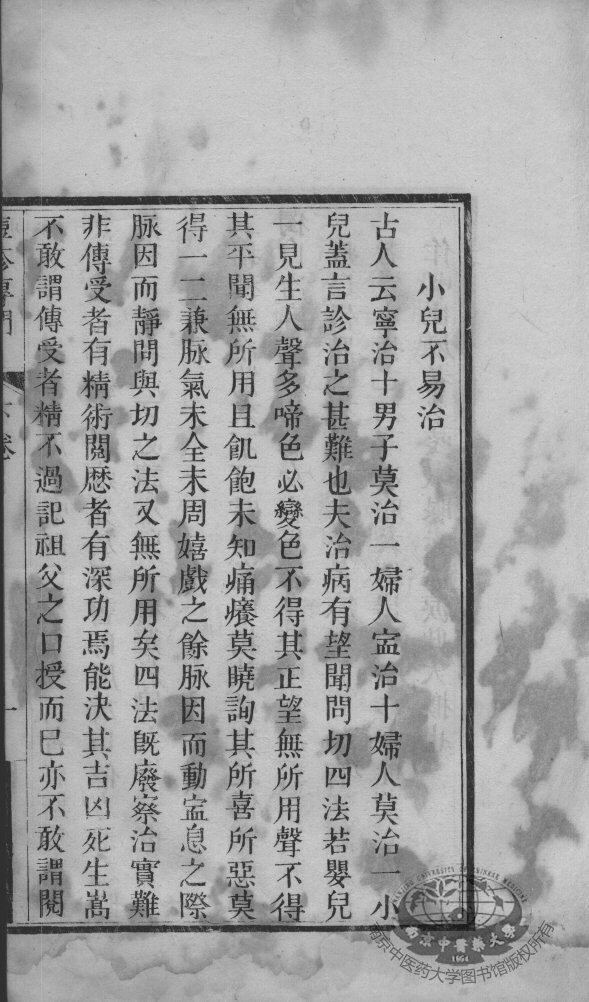 小兒不易治
古人云寧治十男子莫治一婦人寍治十婦人莫治一小
兒蓋言診治之甚難也夫治病有望聞問切四法若嬰兒
一見生人聲多啼色必變色不得其正望無所用聲不得
其平聞無所用且飢飽未知痛癢莫曉詢其所喜所惡莫
得一二兼脉氣未全未周嬉戲之餘脉因而動寍息之際
脉因而靜問與切之法又無所用矣四法旣廢察治實難
非傳受者有精術閱歷者有深功焉能決其吉凶死生嵩
不敢謂傳受者精不過記祖父之口授而已亦不敢謂閱
痘疹專門
下卷
一
NANJING UNIVERSITY OF CHINESE MEDICINE
南京中醫藥大學
1954
南京中医药大学图书馆版权所有